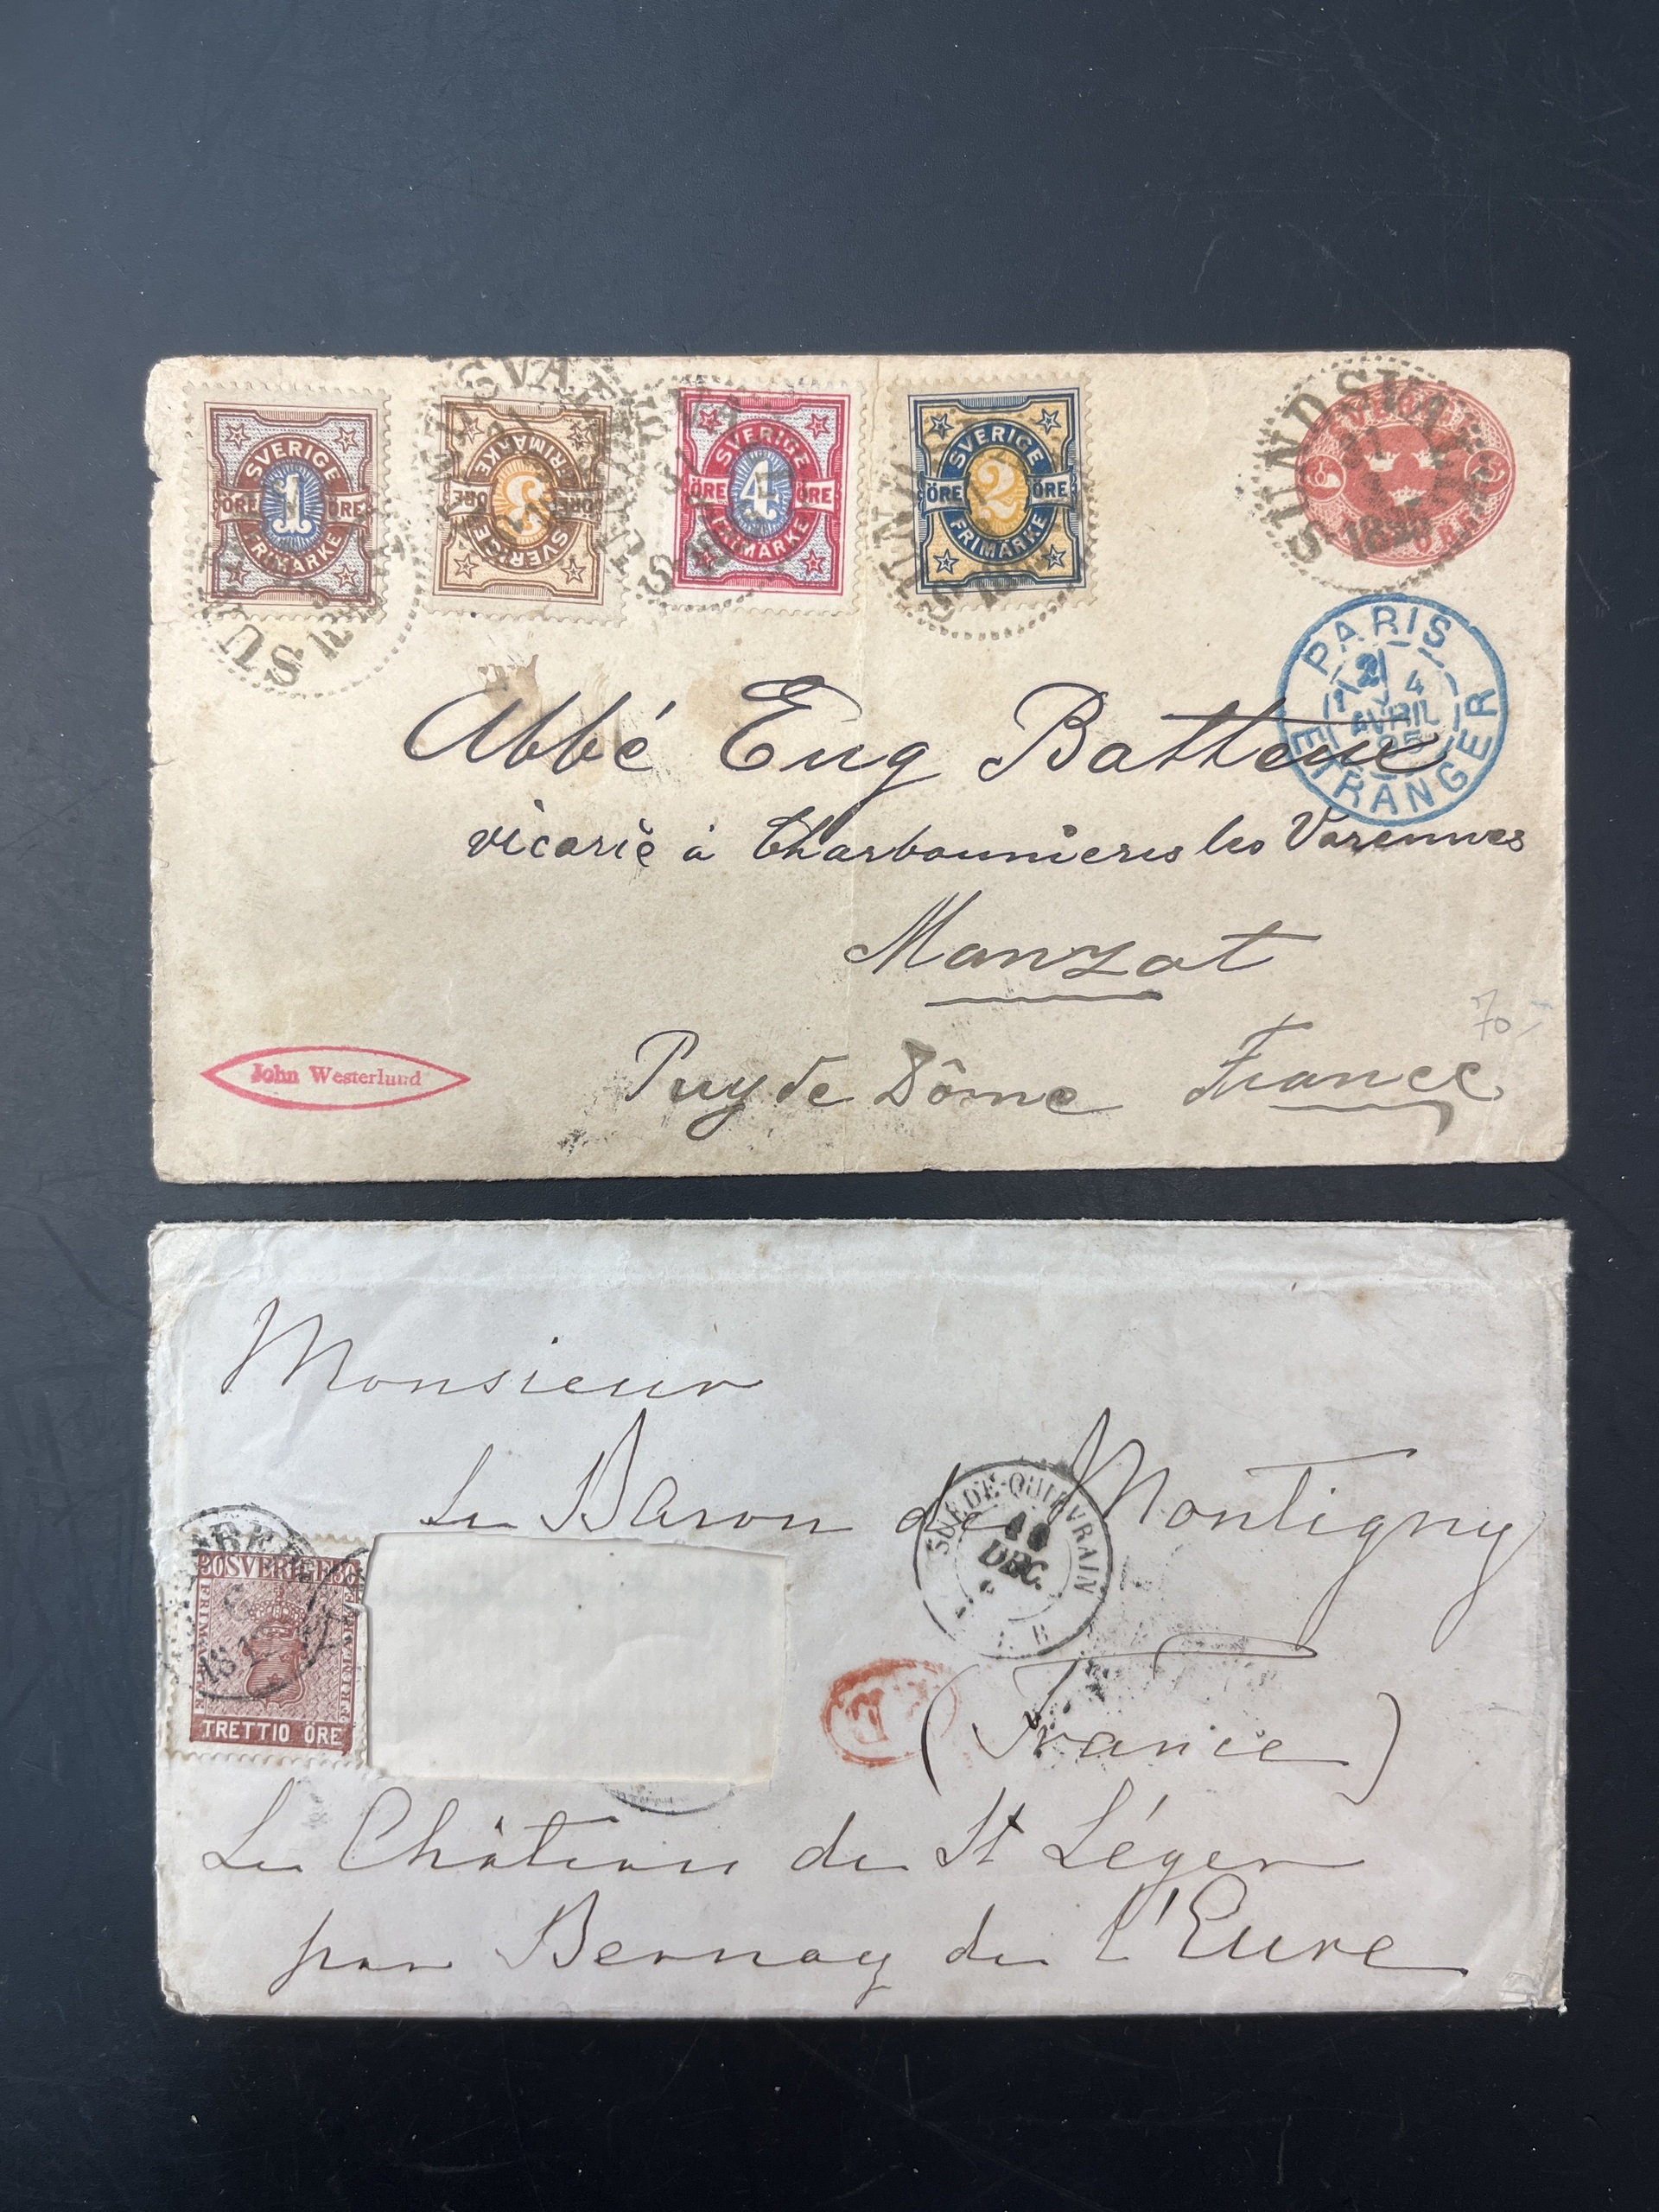 SVERIGE
1
ÖRE ÖRE
FRIMÄRKE
SVERIGE
3
ÖRE ÖRE
FRIMÄRKE
SVERIGE
4
ÖRE ÖRE
FRIMÄRKE
SVERIGE
2
ÖRE ÖRE
FRIMÄRKE
SUNDSVALL
31
PARIS
4
AVRIL
95
ETRANGER
Abbé Eug
à Charbounnieres les Varennes
Manzat
70
Puy de Dôme France
John Westerlund
Monsieur
Le Baron de Montigny
SUEDE-QUIEVRAIN
10
DEC.
30 SVERIGE 30
FRIMÄRKE
FRIMÄRKE
TRETTIO ÖRE
6
PD
(France)
Le Château de St Léger
par Bernay de l'Eure